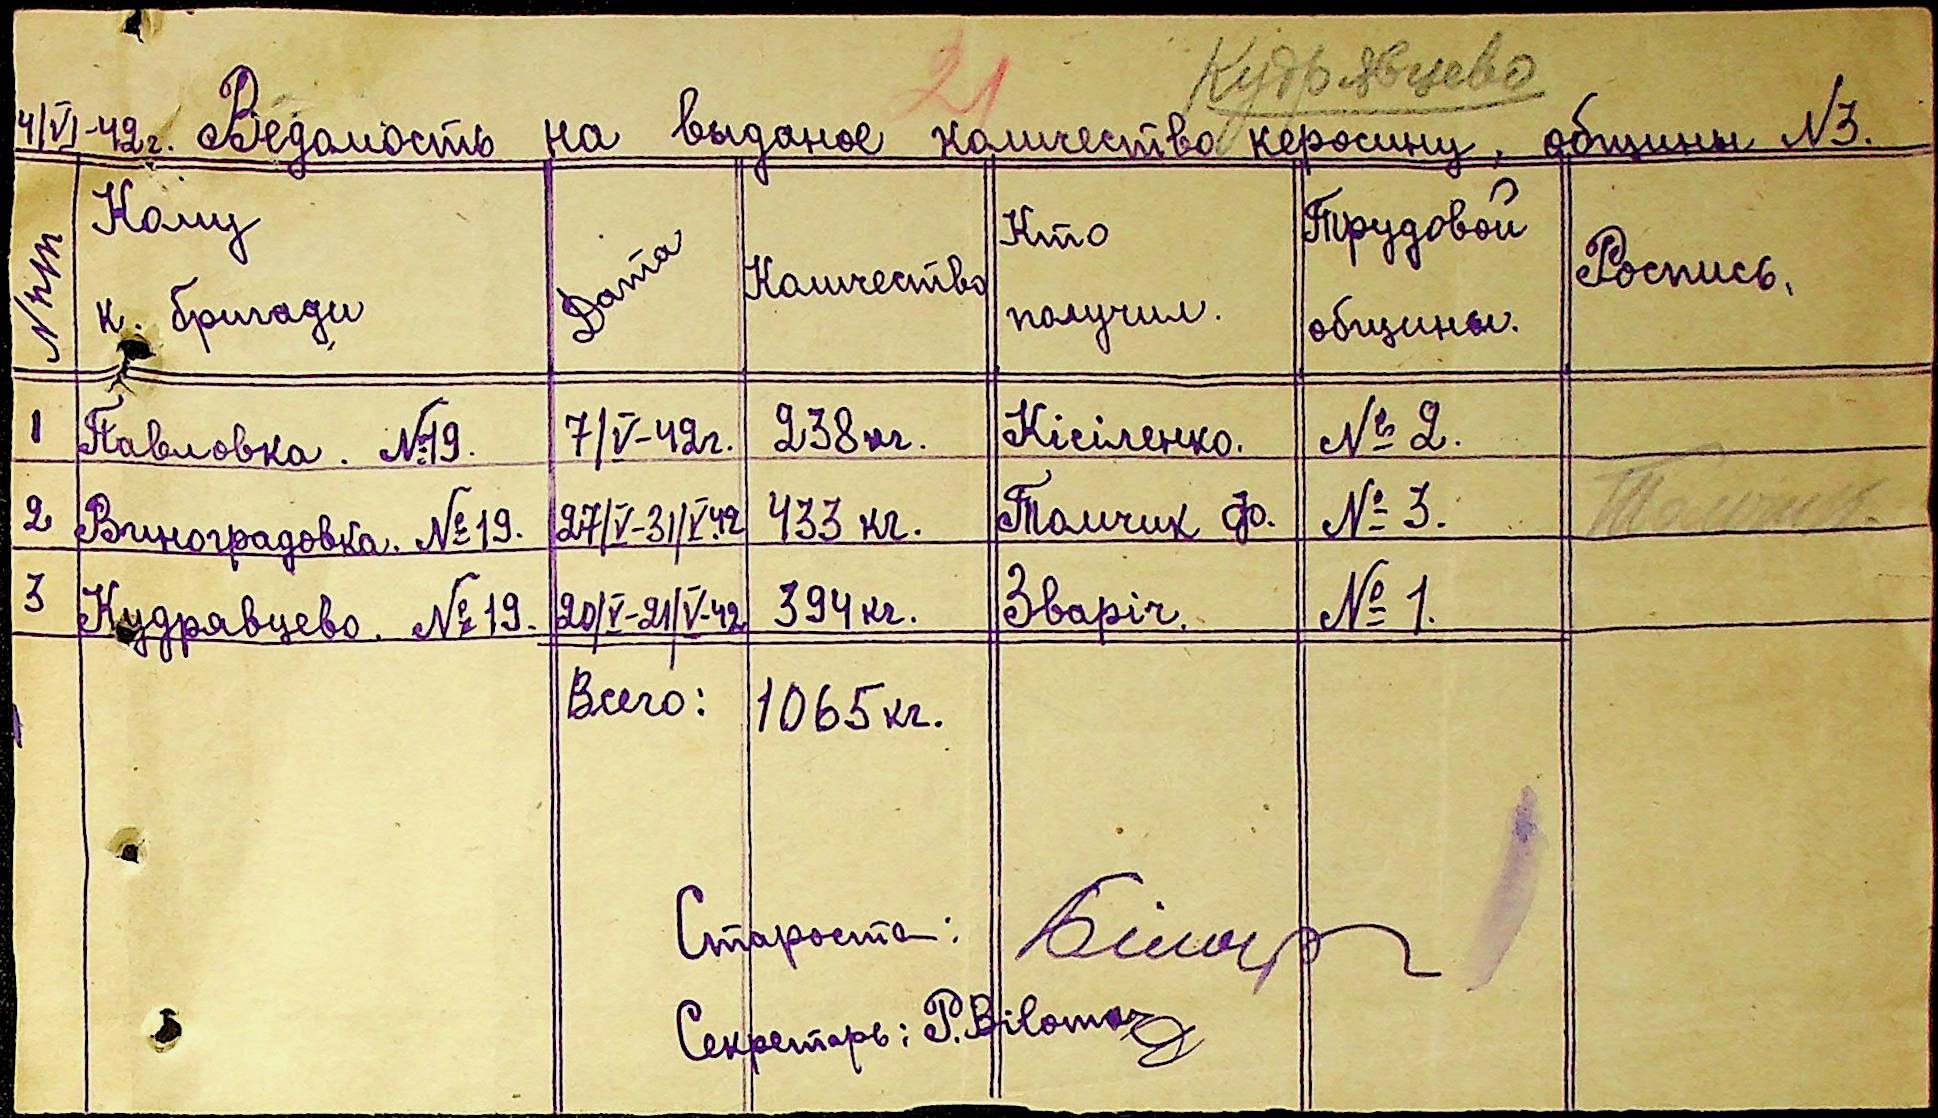 21 Кудрявцево
4/VI-42г. Ведомость на выданое количество керосину, общины N3.
N п/п
Кому
к. бригади
Дата
Количество
Кто
получил.
Трудовой
общины.
Роспись.
1 Павловка. №19. 7/V-42г. 238 кг. Кісіленко. № 2.
2 Виноградовка. №19. 27/V-31/V-42 433 кг. Томчик Ф. № 3. Томчик.
3 Кудрявцево. №19. 20/V-21/V-42 394 кг. Зваріч. № 1.
Всего: 1065 кг.
Староста:
Секретарь: